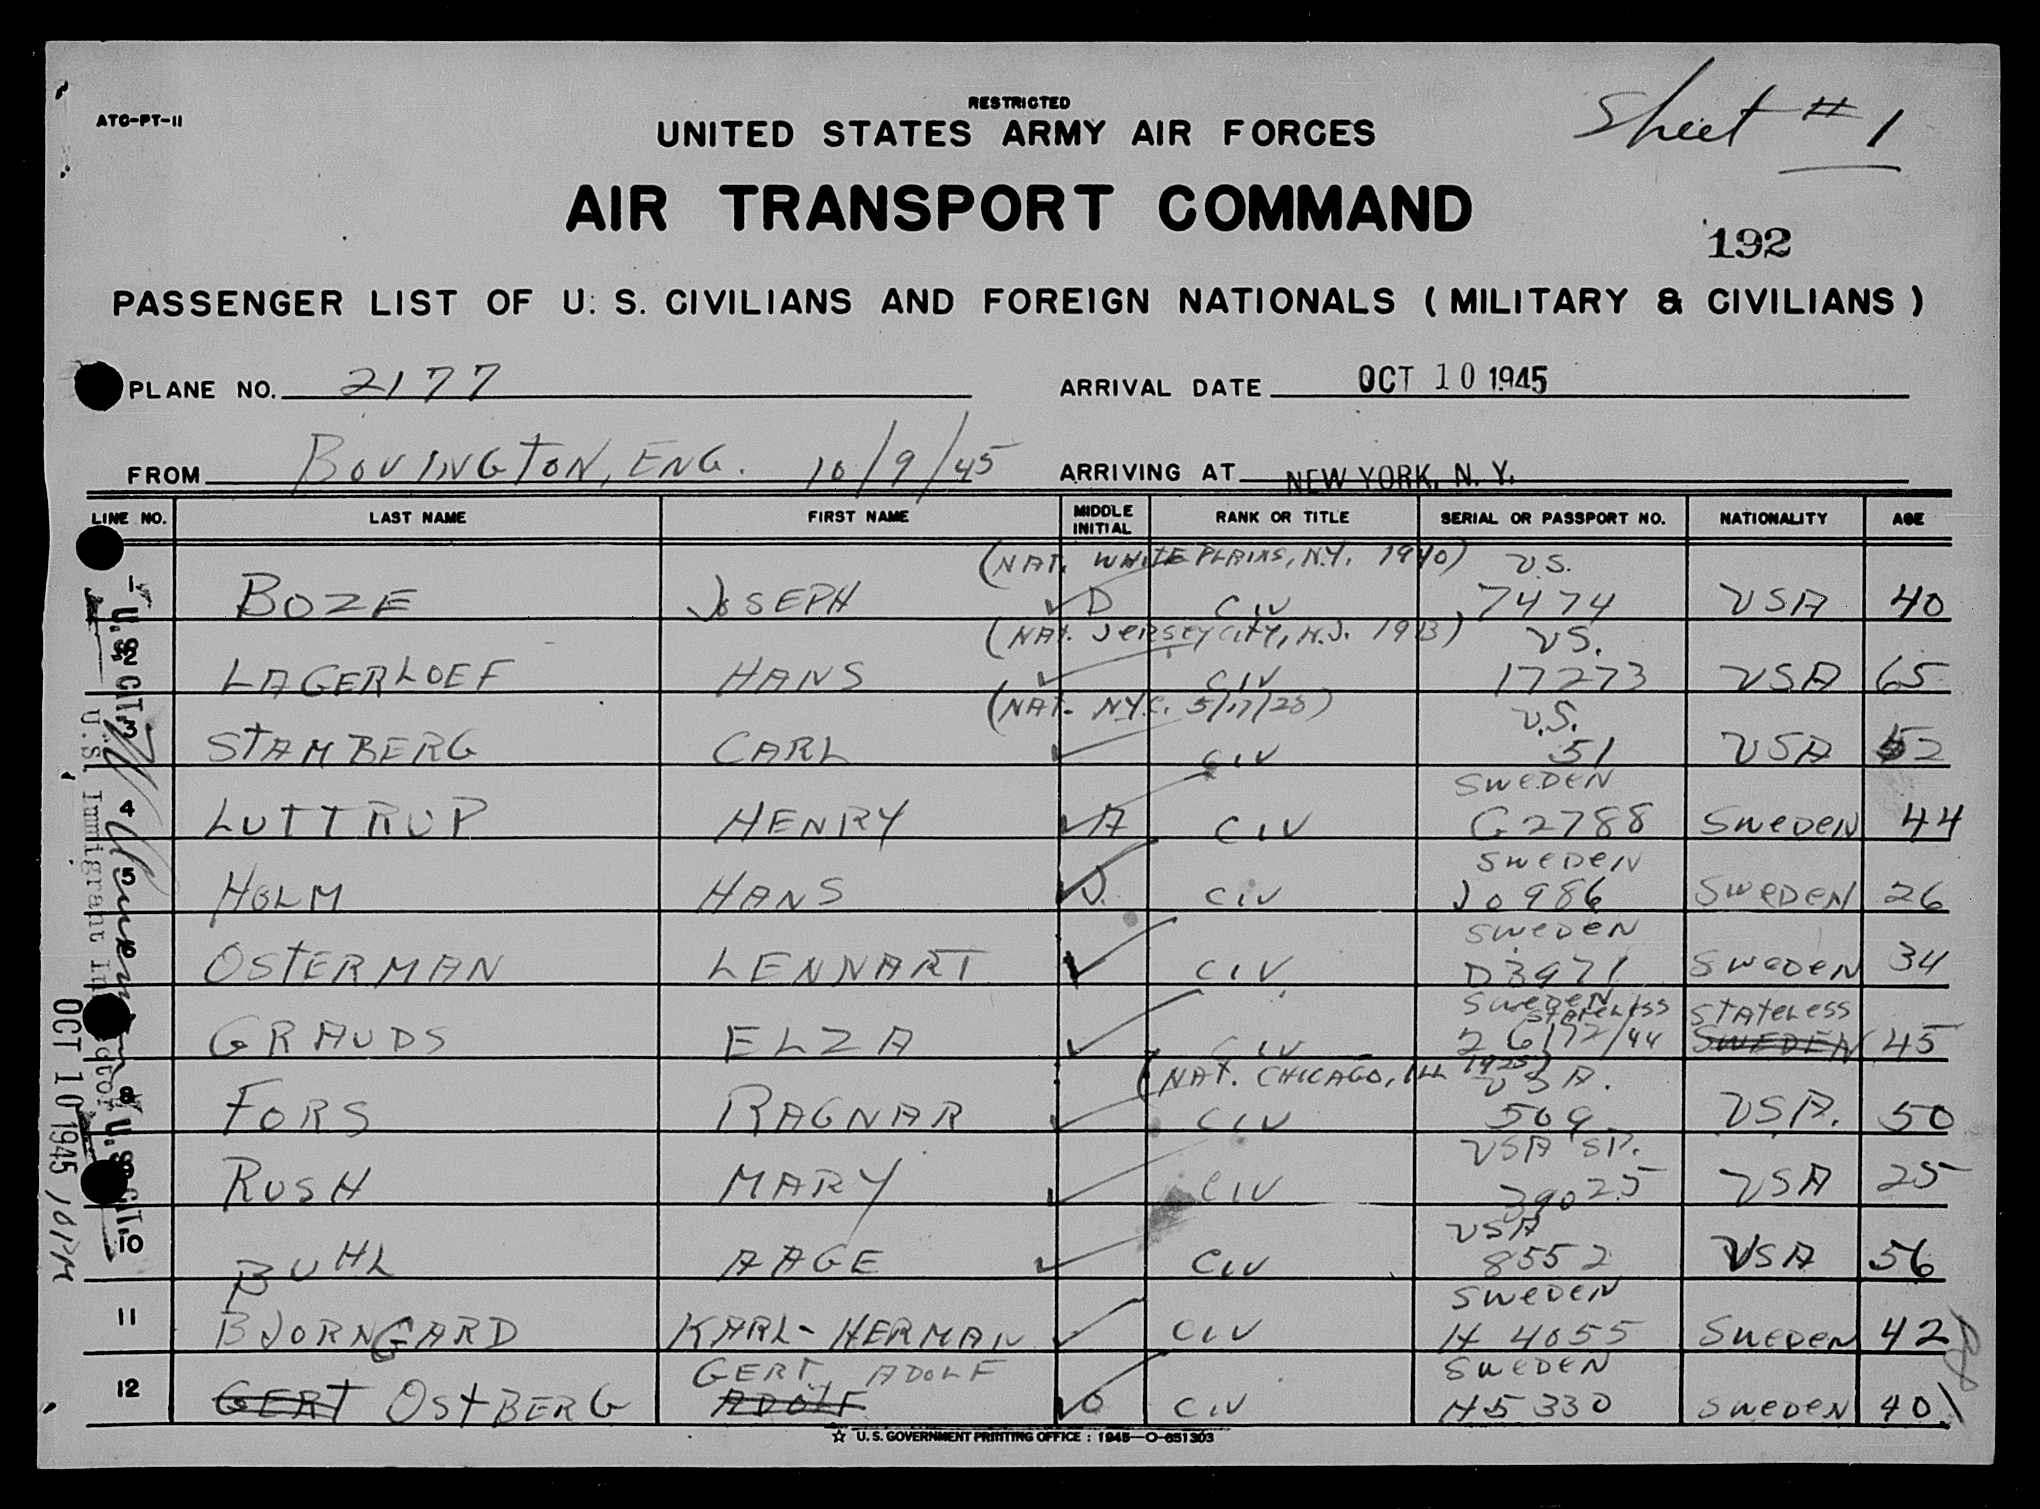 Sheet #1
ATC-PT-11
RESTRICTED
UNITED STATES ARMY AIR FORCES
AIR TRANSPORT COMMAND
192
PASSENGER LIST OF U. S. CIVILIANS AND FOREIGN NATIONALS (MILITARY & CIVILIANS)
PLANE NO. 2177 ARRIVAL DATE OCT 10 1945
FROM BOVINGTON, ENG. 10/9/45 ARRIVING AT NEW YORK, N. Y.
LINE NO. LAST NAME FIRST NAME MIDDLE INITIAL RANK OR TITLE SERIAL OR PASSPORT NO. NATIONALITY AGE
(NAT. WHITE PLAINS, N.Y. 1940) U.S.
1 BOZE JOSEPH D CIV 7474 USA 40
(NAT. JERSEY CITY, N.J. 1913) US.
2 LAGERLOEF HANS CIV 17273 USA 65
(NAT. NYC. 5/17/28) U.S.
3 STAMBERG CARL CIV 51 USA 52
SWEDEN
4 LUTTRUP HENRY A CIV G2788 SWEDEN 44
SWEDEN
5 HOLM HANS J. CIV J0986 SWEDEN 26
SWEDEN
OSTERMAN LENNART CIV D3971 SWEDEN 34
SWEDEN STATELESS STATELESS
GRAUDS ELZA CIV 26172/44 SWEDEN 45
(NAT. CHICAGO, ILL 1925) USA.
8 FORS RAGNAR CIV 509 USA. 50
USA SP.
RUSH MARY CIV 39025 USA 25
USA
10 BUHL AAGE CIV 8552 USA 56
SWEDEN
11 BJORNGARD KARL-HERMAN CIV H 4055 SWEDEN 42
GERT, ADOLF SWEDEN
12 GERT OSTBERG ADOLF O CIV H5330 SWEDEN 40
☆ U. S. GOVERNMENT PRINTING OFFICE : 1945—O-651303
U.S. CIT.
U.S. Immigrant Inspector
OCT 10 1945
U.S. CIT.